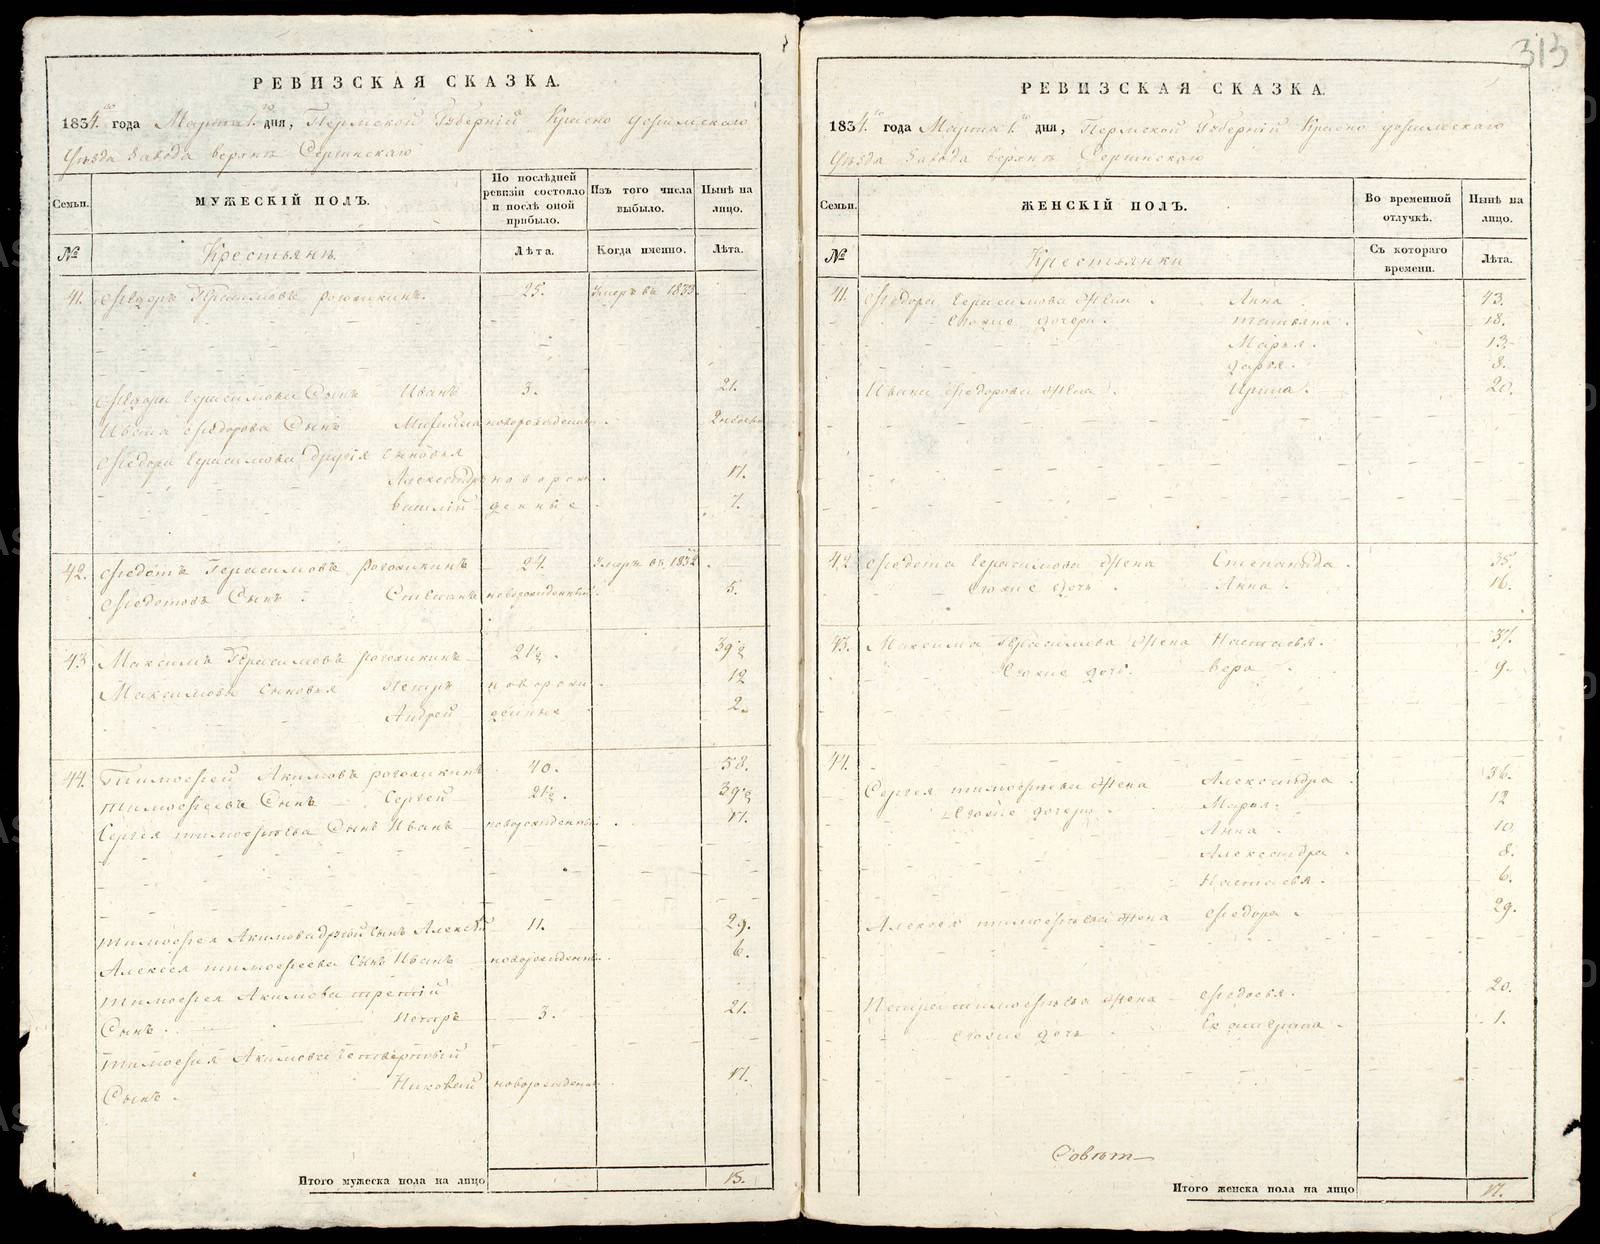 313
РЕВИЗСКАЯ СКАЗКА.
1834го года Марта 1го дня, Пермской Губерніи Красно уфимскаго
Уѣзда Завода верхнъ Сергинскаго
Семьи.
МУЖЕСКІЙ ПОЛЪ.
По послѣдней ревизіи состояло и послѣ оной прибыло.
Изъ того числа выбыло.
Нынѣ на лицо.
№
Крестьянъ.
Лѣта.
Когда именно.
Лѣта.
41. Федоръ Герасимовъ рогожкинъ. 25. Умеръ въ 1833.
Федора Герасимова Сынъ Иванъ 3. 21.
Ивана Федорова Сынъ новорожденный
Федора Герасимова другія сыновья
Александръ новорож 17.
Василій денные 7.
42. Федотъ Герасимовъ рогожкинъ 24. Умеръ въ 1832
Федотовъ Сынъ Степанъ новорожденный 5.
43 Максимъ Герасимовъ рогожкинъ 21½. 39½
Максимовы сыновья Петръ новорож 12
Андрей денные 2.
44. Тимофей Акимовъ рогожкинъ 40. 58.
тимофеевъ Сынъ Сергей 21½. 39½
Сергея тимофеева Сынъ Иванъ новорожденный 17.
тимофея Акимова другой сынъ Алексей 11. 29.
Алексея тимофеева сынъ Иванъ новорожденный 6.
тимофея Акимова третій
Сынъ. Петръ 3. 21.
тимофея Акимова четвертый
Сынъ. новорожденный 17.
Итого мужеска пола на лицо 15.
РЕВИЗСКАЯ СКАЗКА.
1834го года Марта 1го дня, Пермской Губерніи Красно уфимскаго
Уѣзда Завода верхнъ Сергинскаго
Семьи.
ЖЕНСКІЙ ПОЛЪ.
Во временной отлучкѣ.
Нынѣ на лицо.
№
Крестьянки
Съ котораго времени.
Лѣта.
41. Федора Герасимова жена Анна 43.
Ево же дочери. татьяна. 18.
Марья. 13.
дарья. 8.
Ивана Федорова жена Ирина. 20.
42 Федота Герасимова жена Степанида 35.
Ево же дочь Анна. 16.
43. Максима Герасимова жена Настасья. 37.
Ево же дочь Вера 9.
44.
Сергея тимофеева жена Александра 36.
Ево же дочери Марья. 12
Анна 10
Александра 8.
Настасья. 6.
Алексея тимофеева жена Федора 29.
Петра тимофеева жена Федосья. 20.
Ево же дочь Екатерина 1.
Итого женска пола на лицо 17.